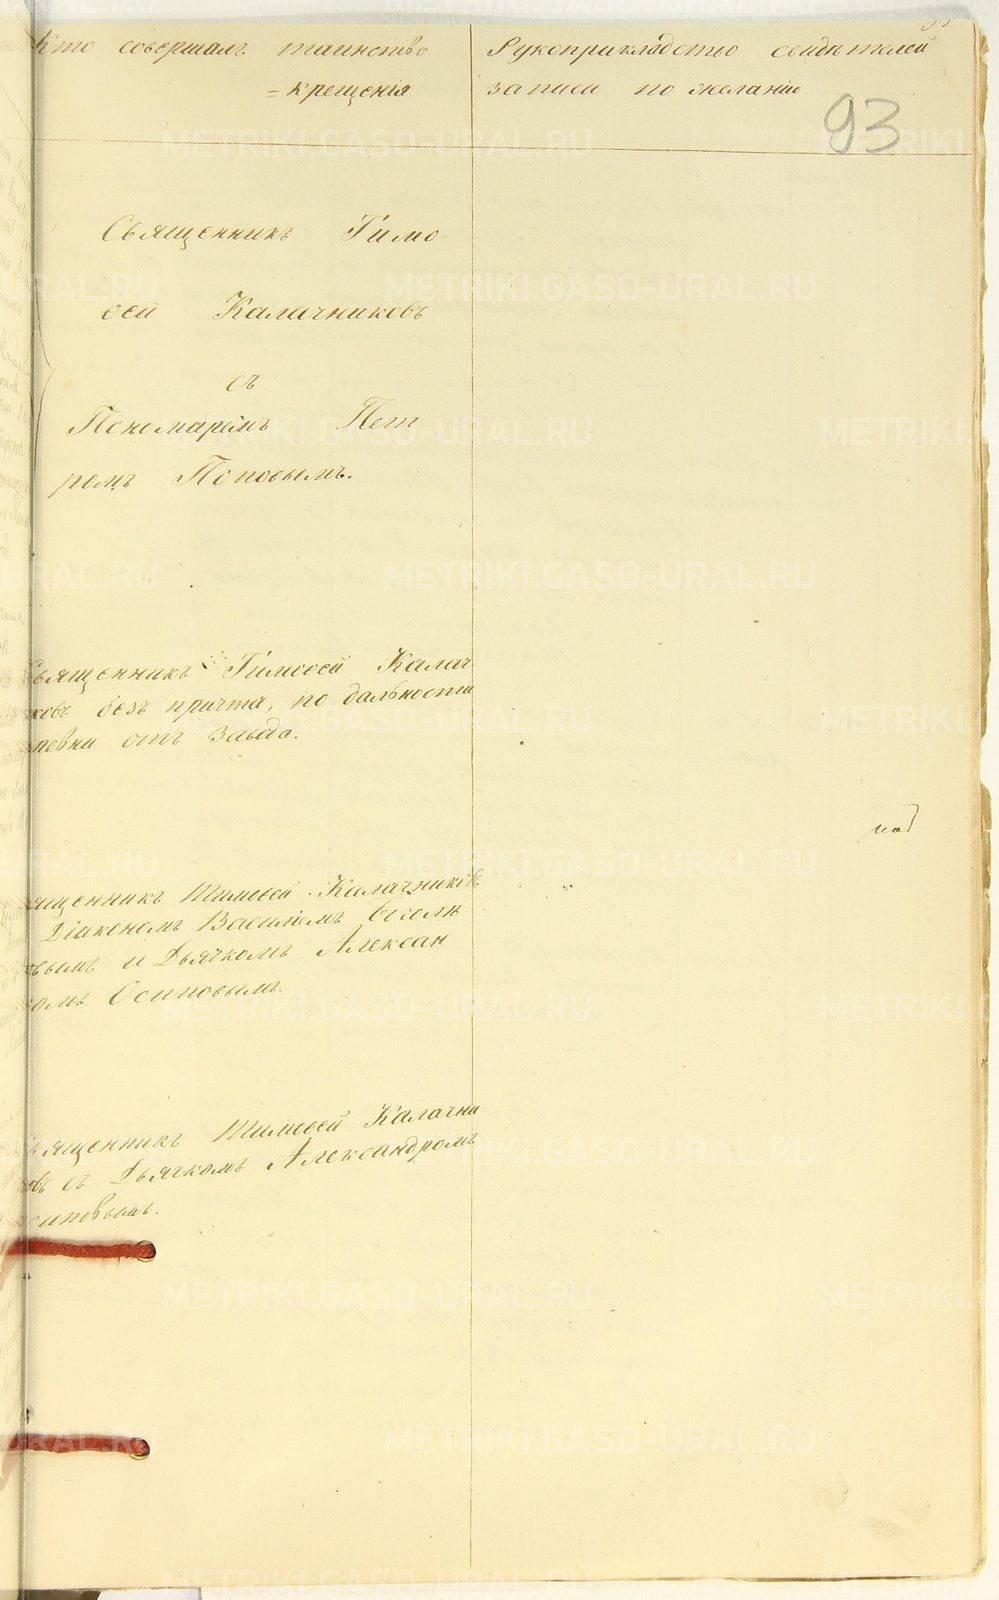 Кто совершалъ таинство
крещенія
Рукоприкладство свидѣтелей
записи по желанію
93
Священникъ Тимо
ѳей Калачниковъ
съ
Пономаремъ Пет
ромъ Поповымъ.
Священникъ Тимоѳей Калач
ковъ безъ причта, по дальности
ревни отъ завода.
ященникъ Тимоѳей Калачниковъ
Діакономъ Василіемъ
вымъ и Дьячкомъ Алексан
омъ Осиповымъ.
вященникъ Тимоѳей Калачни
овъ съ Дьячкомъ Александромъ
сиповымъ.
METRIKI.GASO-URAL.RU